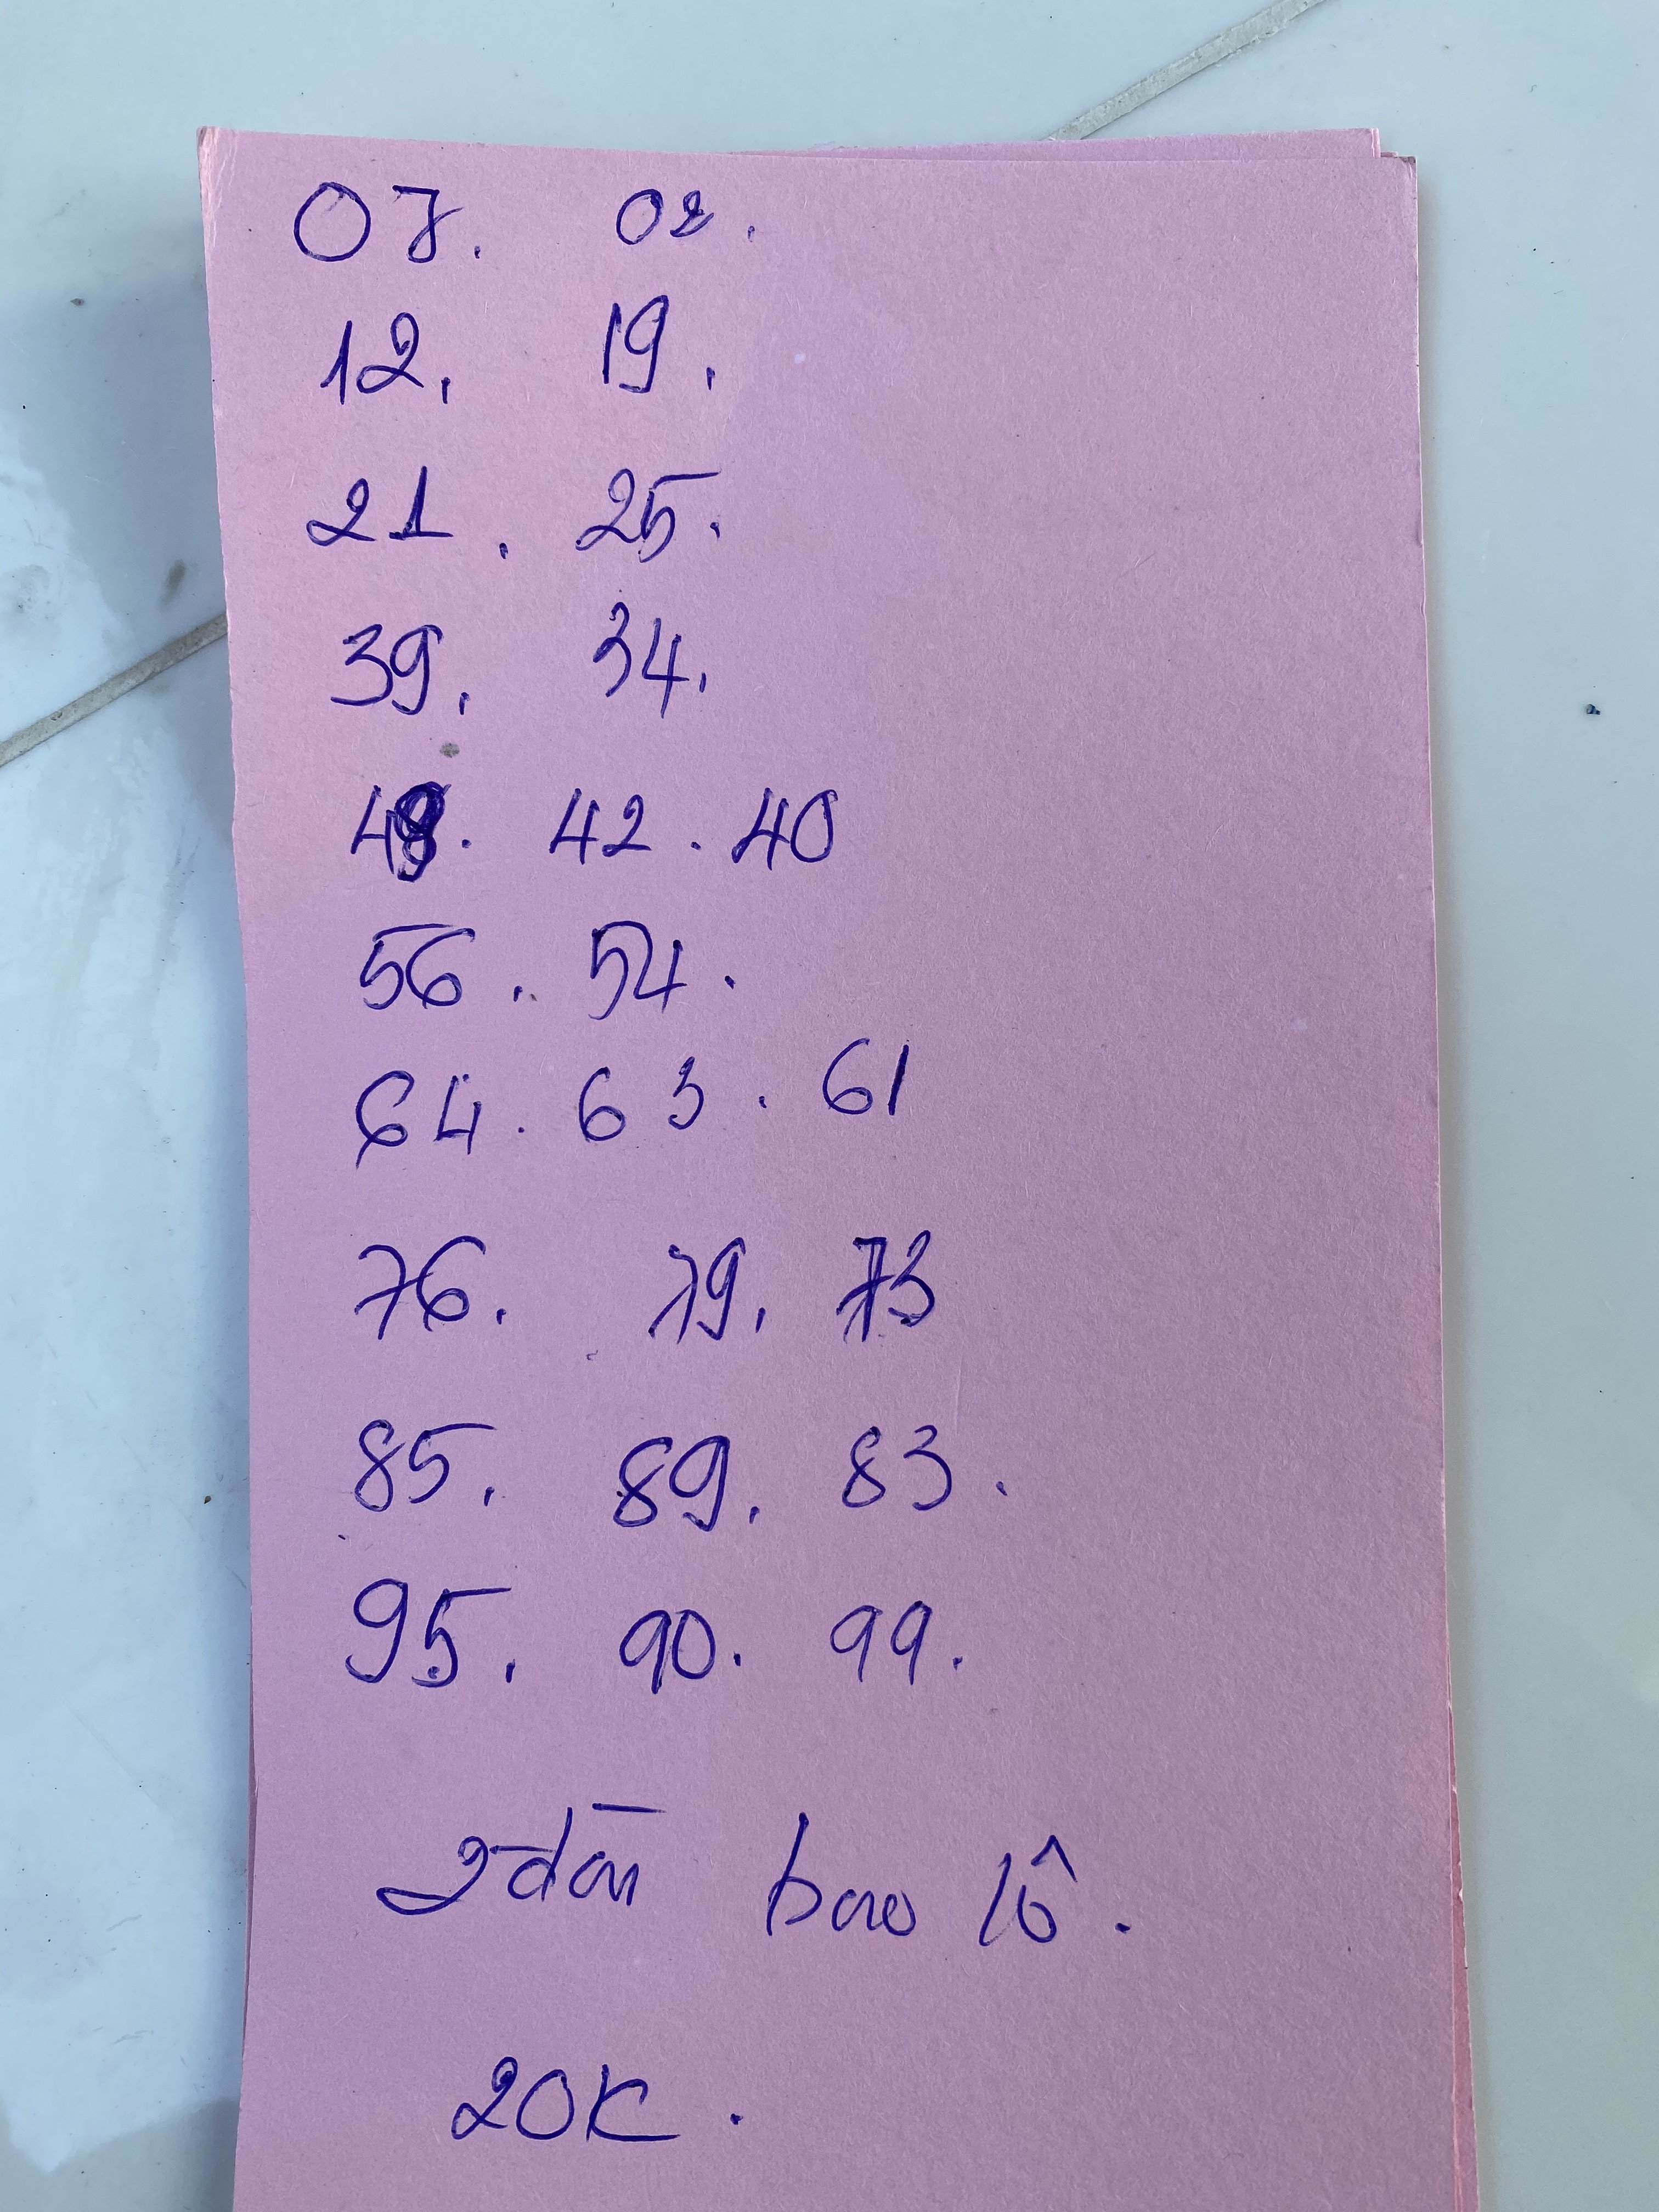 07. 02.
12. 19.
21. 25.
39. 34.
49. 42. 40
56. 54.
64. 63. 61
76. 79. 73
85. 89. 83.
95. 90. 99.
2 đài bao lô.
20K.